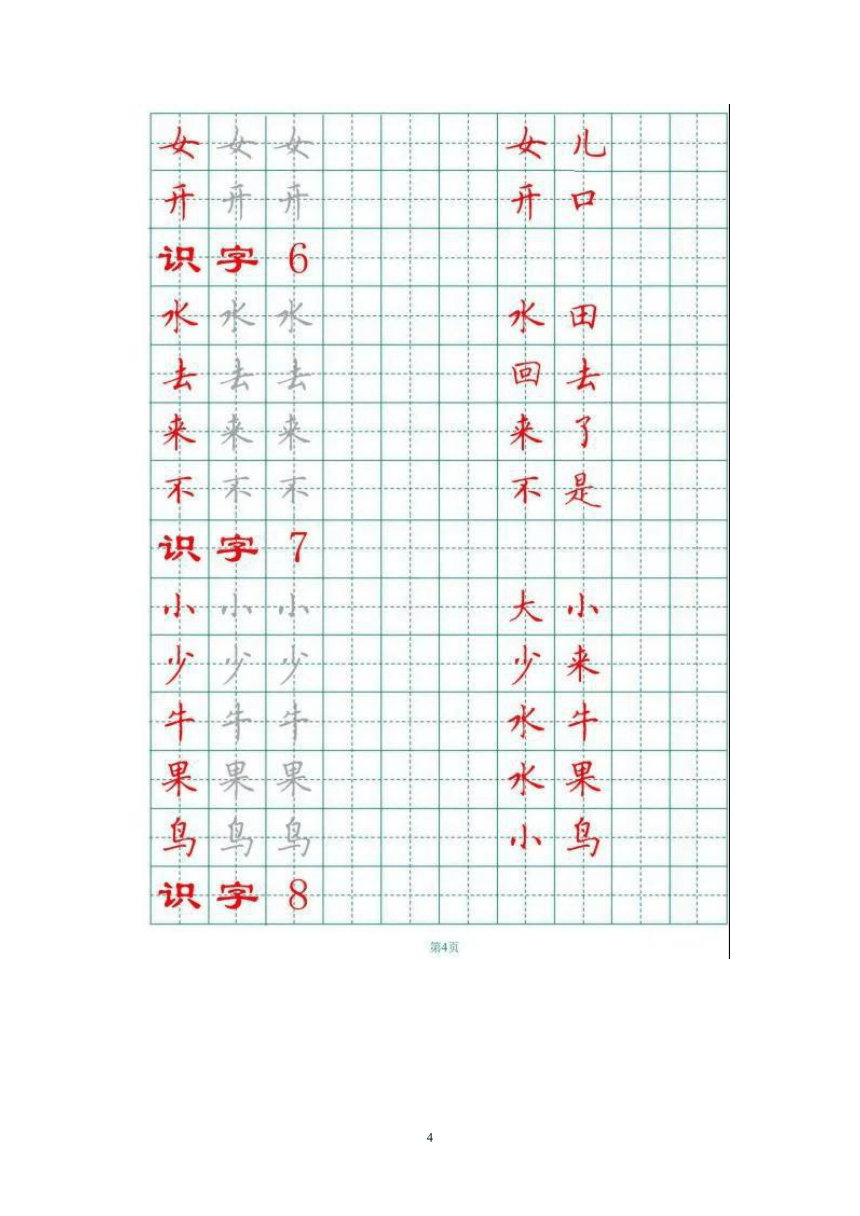 女 女 女 女 儿
开 开 开 开 口
识 字 6
水 水 水 水 田
去 去 去 回 去
来 来 来 来 了
不 不 不 不 是
识 字 7
小 小 小 大 小
少 少 少 少 来
牛 牛 牛 水 牛
果 果 果 水 果
鸟 鸟 鸟 小 鸟
识 字 8
第4页
4